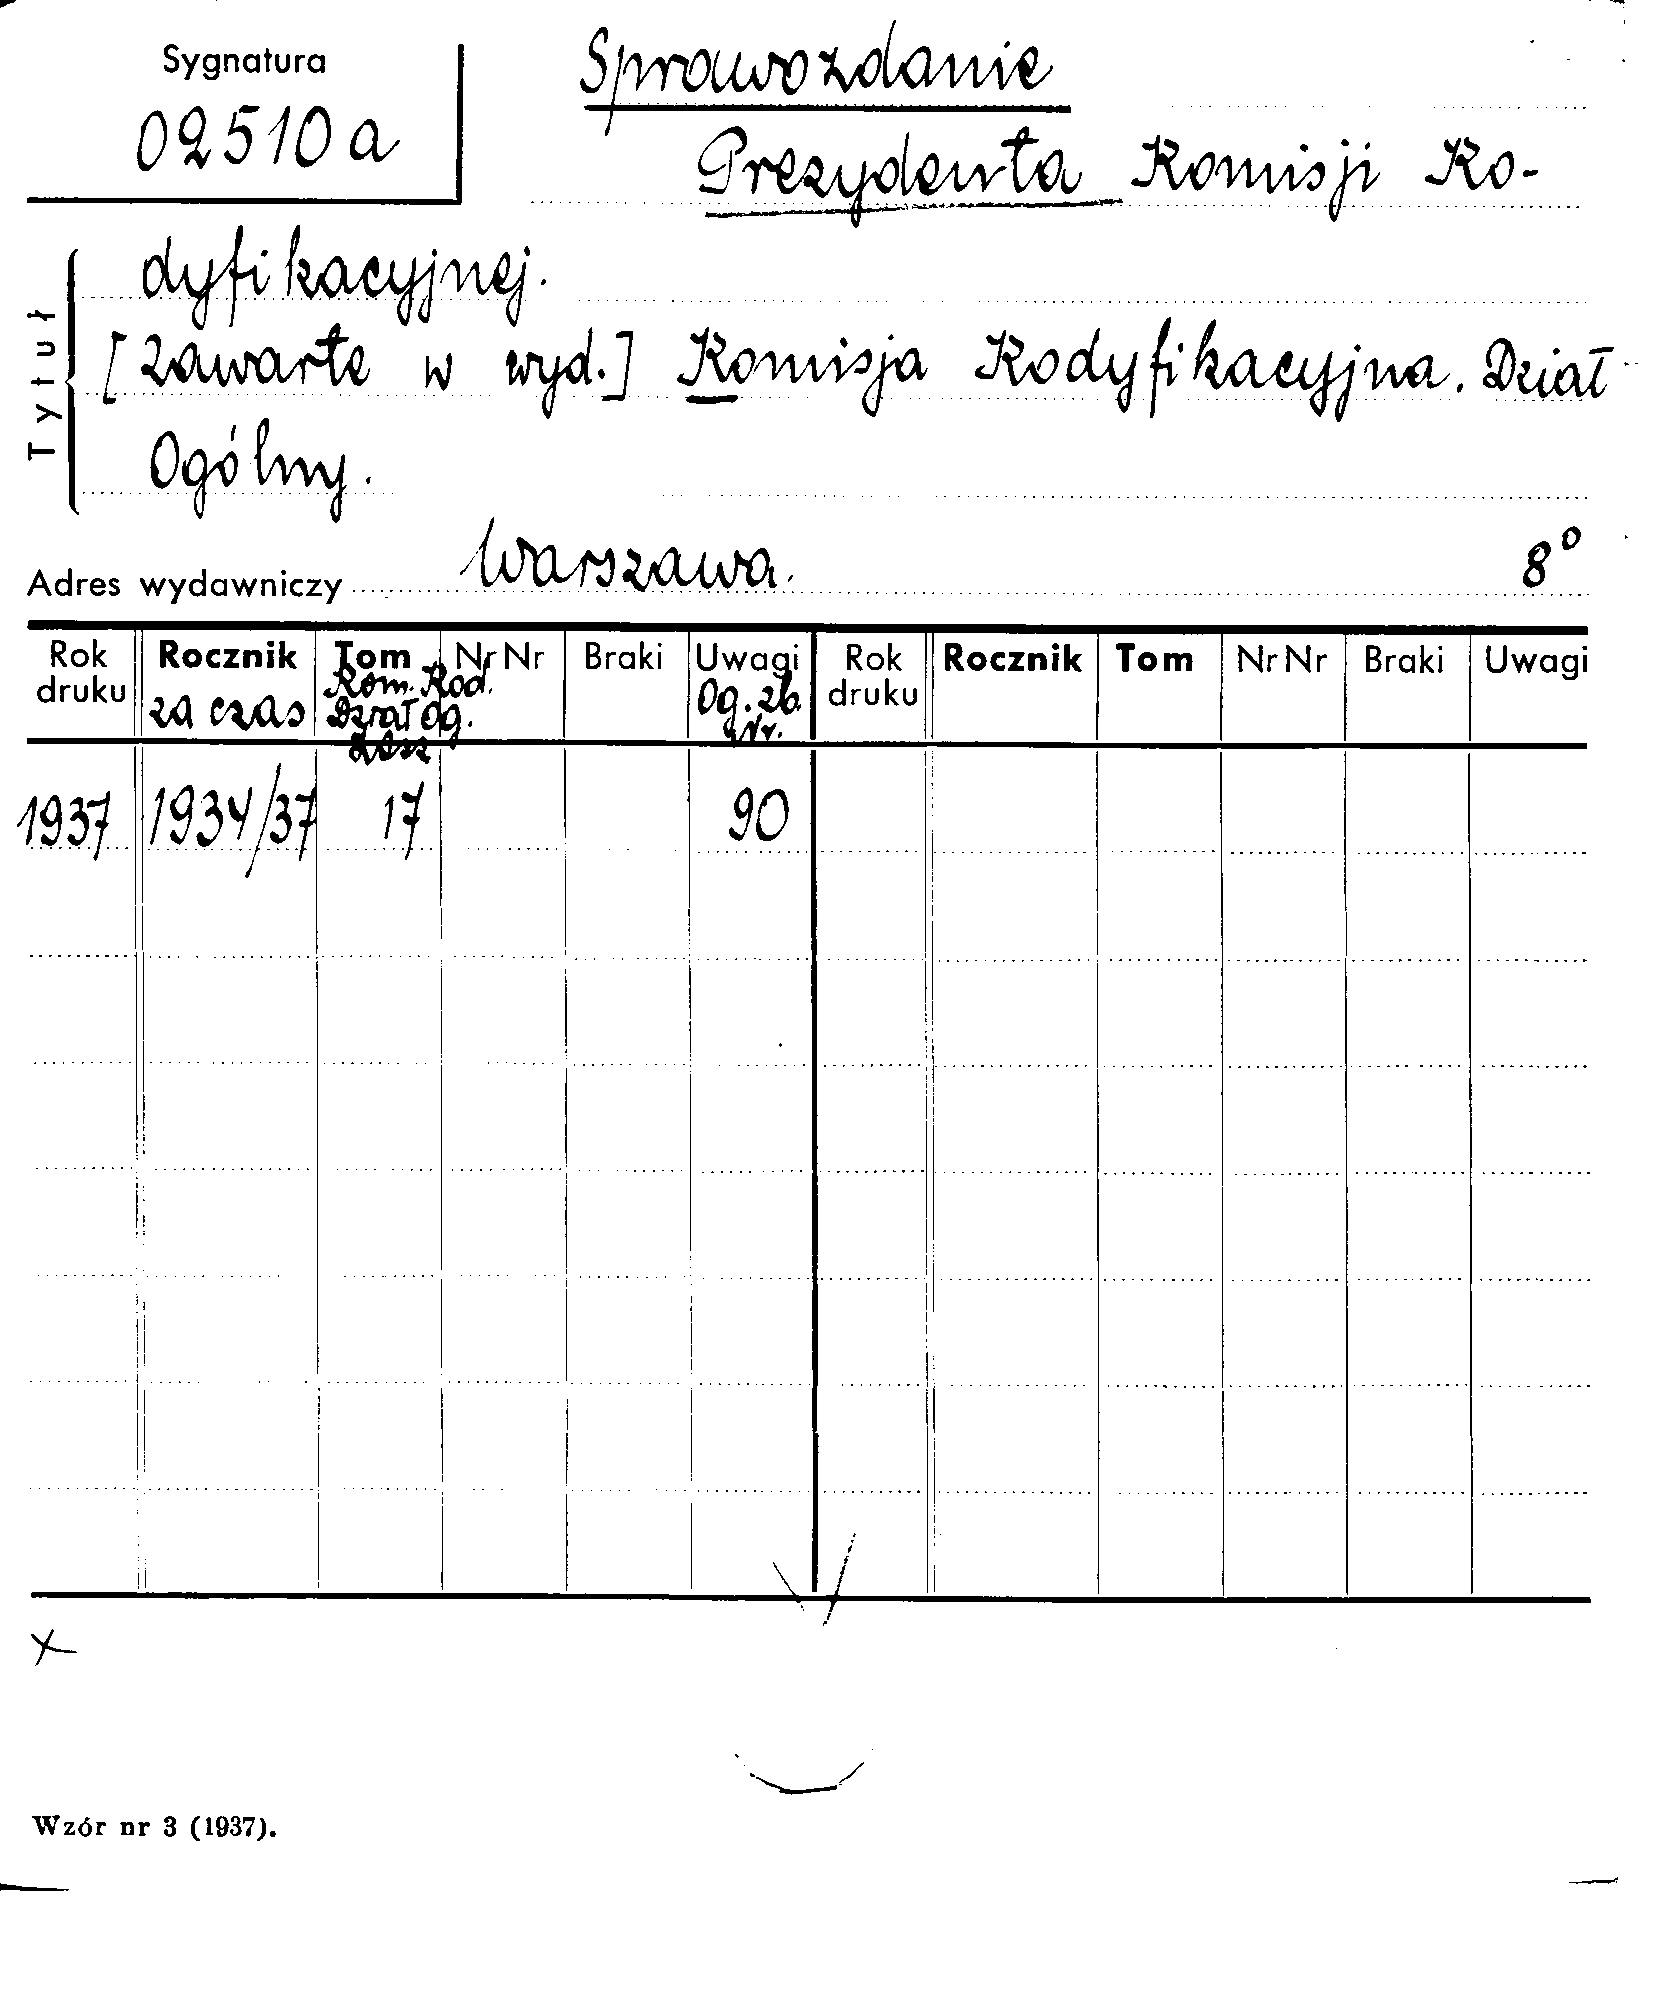 Sygnatura
02510a
Sprawozdanie
Prezydenta Komisji Ko-
dyfikacyjnej.
[zawarte w wyd.] Komisja Kodyfikacyjna. Dział
Ogólny.
Tytuł
Adres wydawniczy Warszawa. 8°
Rok druku Rocznik za czas Tom Kom. Kod. Dział Og. zesz NrNr Braki Uwagi Og. zb. Nr. Rok druku Rocznik Tom NrNr Braki Uwagi
1937 1934/37 17 90
x
Wzór nr 3 (1937).